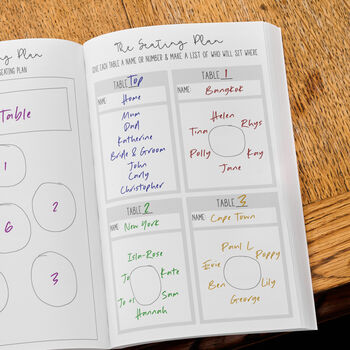 Seating Plan
SEATING PLAN
Table
1
6
2
3
The Seating Plan
GIVE EACH TABLE A NAME OR NUMBER & MAKE A LIST OF WHO WILL SIT WHERE
TABLE Top
NAME: Home
Mum
Dad
Katherine
Bride & Groom
John
Carly
Christopher
TABLE 1
NAME: Bangkok
Helen
Tina Rhys
Polly Kay
Jane
TABLE 2
NAME: New York
Isla-Rose
Kate
Sam
Hannah
TABLE 3
NAME: Cape Town
Paul L
Evie Poppy
Ben Lily
George